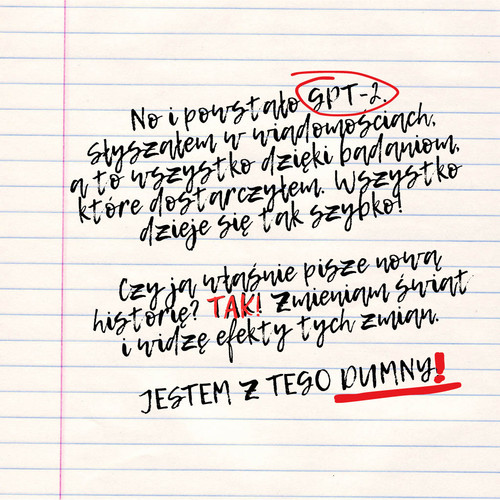 No i powstało GPT-2.
Słyszałem w wiadomościach,
a to wszystko dzięki badaniom,
które dostarczyłem. Wszystko
dzieje się tak szybko!
Czy ja właśnie pisze nową
historię? TAK! Zmieniam świat
i widzę efekty tych zmian.
JESTEM Z TEGO DUMNY!